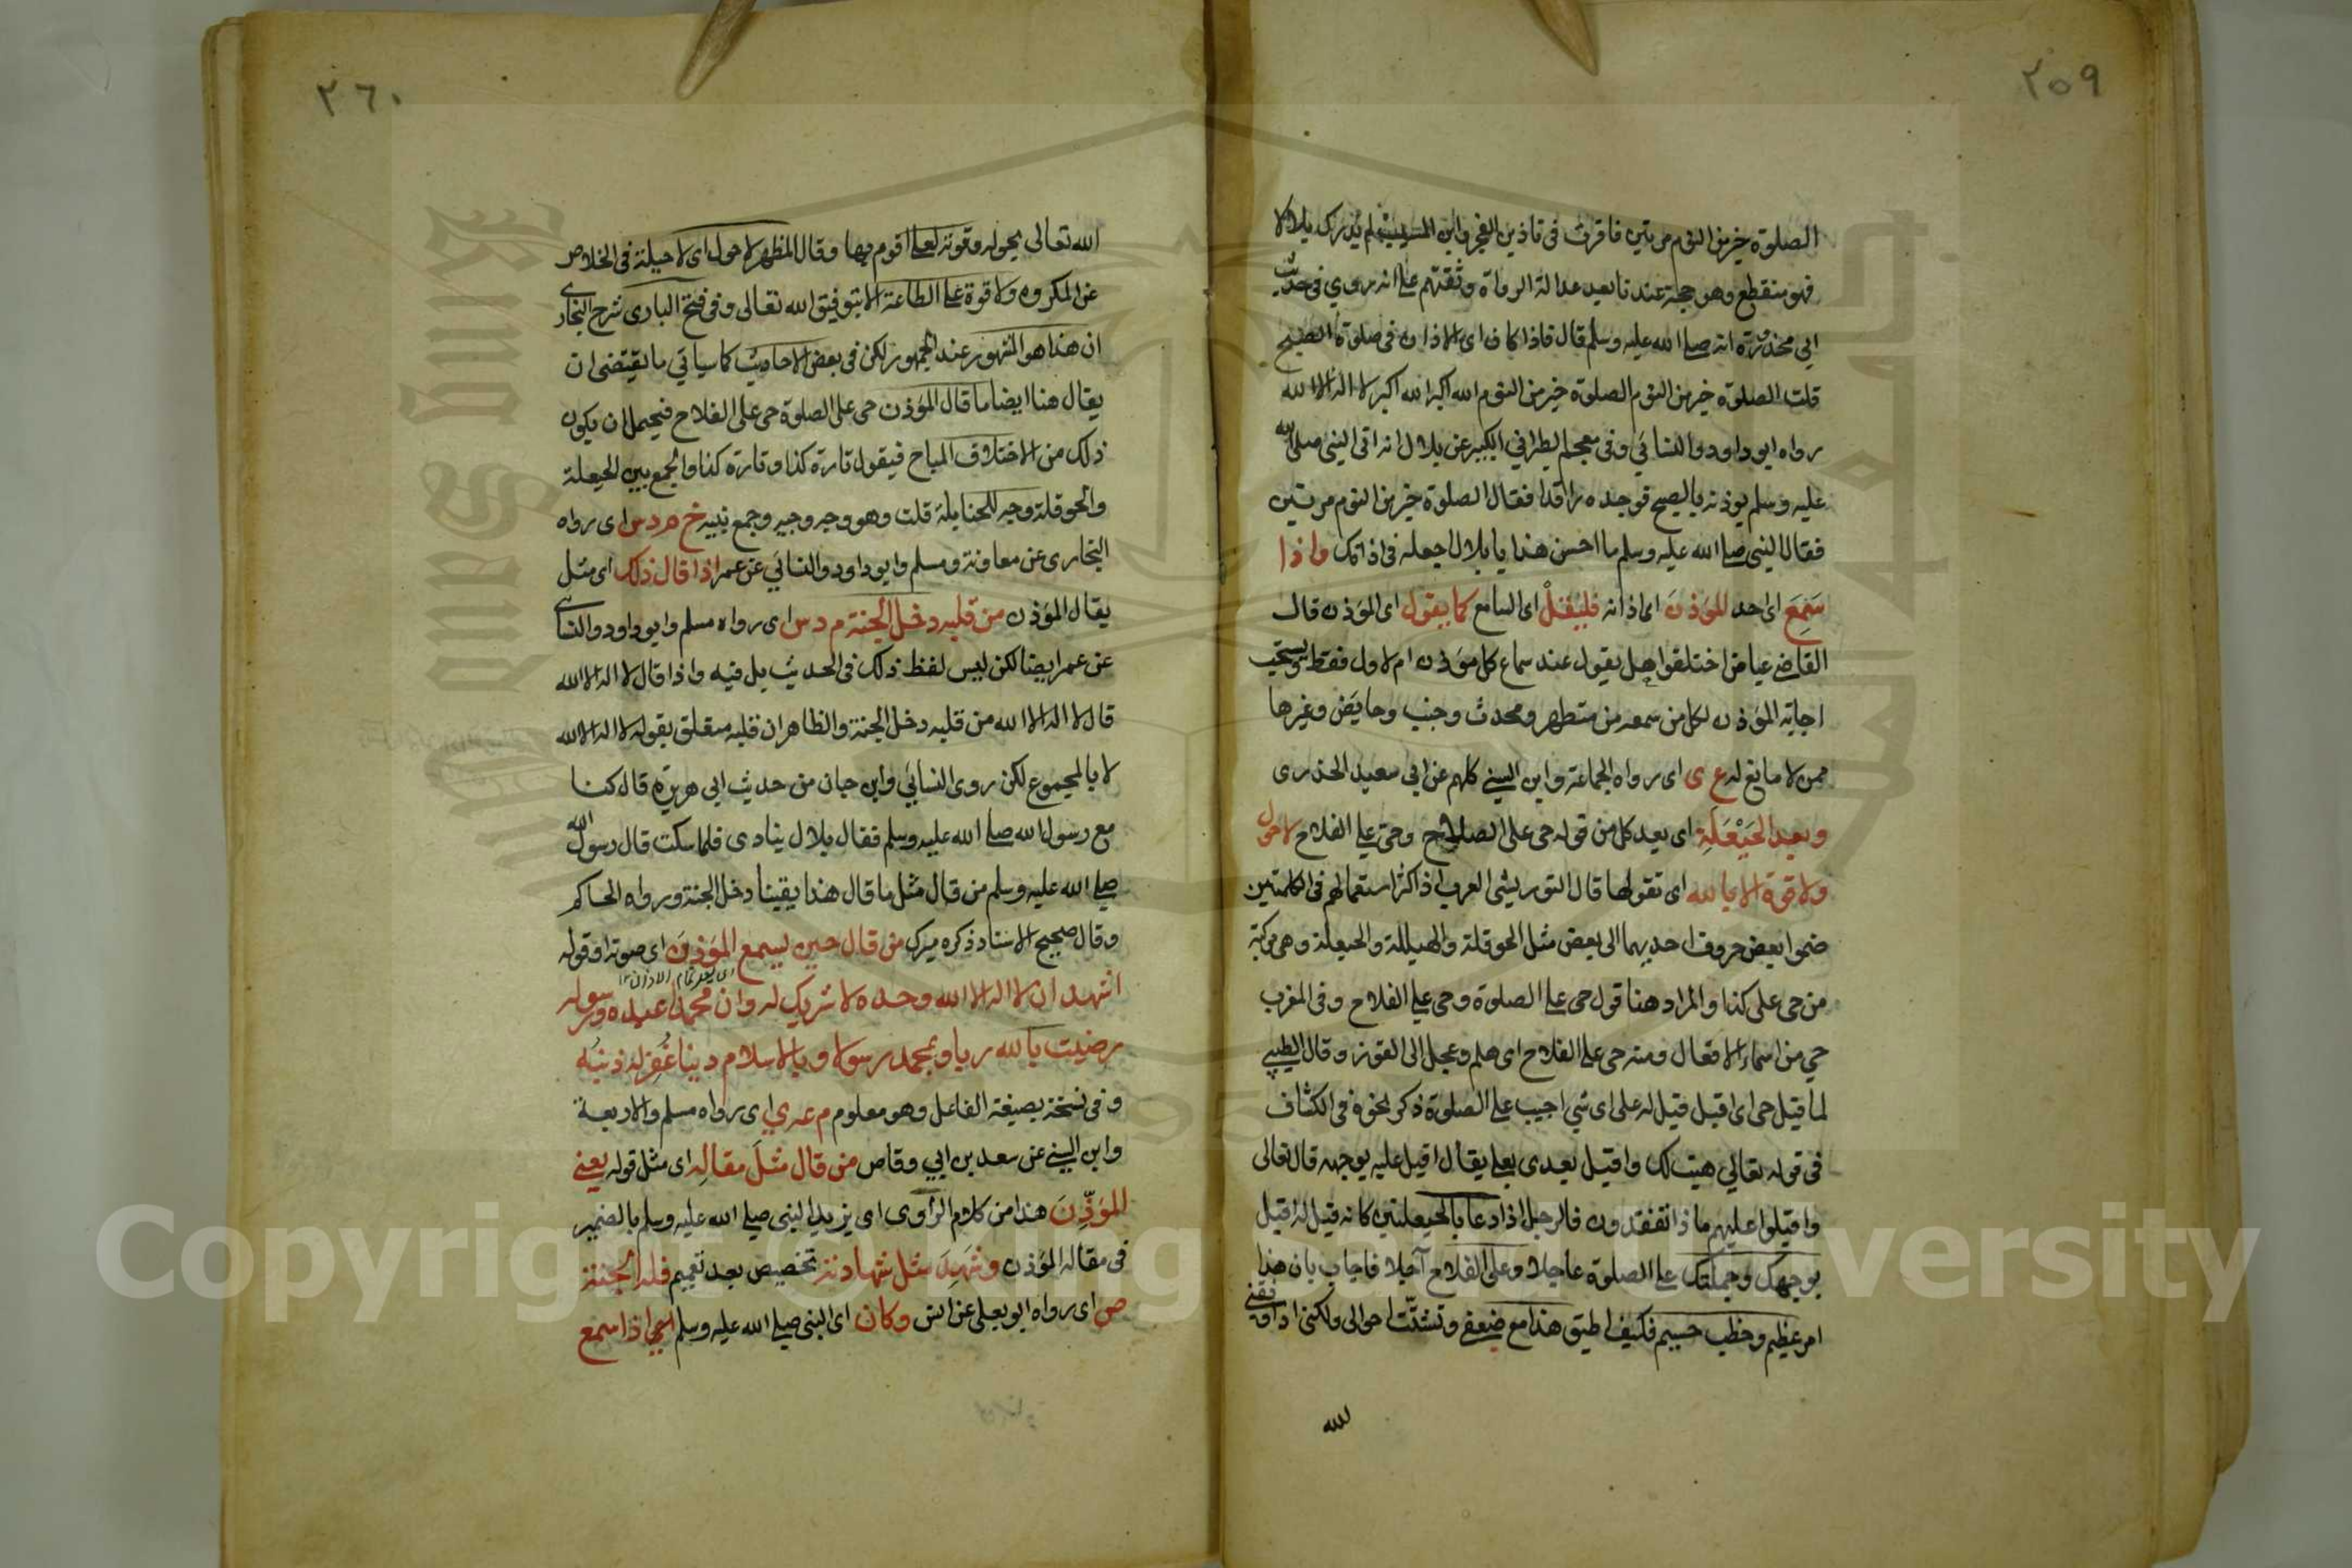 ٢٥٩
الصلوة خير من النوم مرتين فاقرت في تاذين الفجر وابن المسيب لم يدرك بلالا
فهو منقطع وهو حجة عندنا بعد عدالة الرواة وثقتهم على انه روي في حديث
ابي محذورة انه صلى الله عليه وسلم قال فاذا كان اى الاذان في صلوة الصبح
قلت الصلوة خير من النوم الصلوة خير من النوم الله اكبر الله اكبر لا اله الا الله
رواه ابو داود والنسائي وفي معجم الطبراني الكبير عن بلال انه اتى النبي صلى الله
عليه وسلم يوذنه بالصبح فوجده راقدا فقال الصلوة خير من النوم مرتين
فقال النبي صلى الله عليه وسلم ما احسن هذا يا بلال اجعله في اذانك واذا
سَمِعَ اى احد المؤذنَ اى اذانه فليقلْ اى السامع كما يقول اى المؤذن قال
القاضي عياض اختلفوا هل يقول عند سماع كل مؤذن ام لاول فقط ويستحب
اجابة المؤذن لكل من سمعه من متطهر ومحدث وجنب وحايض وغيرها
ممن لا مانع له ع ى اى رواه الجماعة وابن السني كلهم عن ابي سعيد الخدرى
وبعد الحَيْعَلَةِ اى بعد كل من قوله حى على الصلاح وحى على الفلاح لا حول
ولا قوة الا بالله اى تقولها قال التوربشتى العرب اذا كثر استعمالهم في الكلمتين
ضموا بعض حروف احديهما الى بعض مثل الحوقلة والهيللة والحيعلة وهي مركبة
من حى على كذا والمراد هنا قول حى على الصلوة وحى على الفلاح وفى المغرب
حي من اسماء الافعال ومنه حى على الفلاح اى هلم وعجل الى الفوز وقال الطيبي
لما قيل حى اى اقبل قيل له على اى شي اجيب على الصلوة ذكر نحوه فى الكشاف
فى قوله تعالى هيت لك واقبل يعدى بعلى يقال اقبل عليه بوجهه قال تعالى
واقبلوا عليهم ماذا تفقدون فالرجل اذا دعا بالحيعلتين كانه قيل له اقبل
بوجهك وجملتك على الصلوة عاجلا وعلى الفلاح آجلا فاجاب بان هذا
امر عظيم وخطب جسيم فكيف اطيق هذا مع ضعفى وتشتّت احوالى ولكنى اذا وفقنى
لله
٢٦٠
الله تعالى بحوله وقوته لعلى اقوم بها وقال المظهر لا حول اى لا حيلة فى الخلاص
عن المكروه ولا قوة على الطاعة الا بتوفيق الله تعالى وفى فتح البارى شرح البخارى
ان هذا هو المشهور عند الجمهور لكن فى بعض الاحاديث كما سياتي ما يقتضى ان
يقال هنا ايضا ما قال المؤذن حى على الصلوة حى على الفلاح فيحمل ان يكون
ذلك من الاختلاف المباح فيقول تارة كذا وتارة كذا والجمع بين الحيعلة
والحوقلة وجه للحنابلة قلت وهو وجه وجيه وجمع نبيه خ م د س اى رواه
البخارى عن معاوية ومسلم وابو داود والنسائي عن عمر اذا قال ذلك اى مثل
يقال المؤذن من قلبه دخل الجنة م د س اى رواه مسلم وابو داود والنسائى
عن عمر ايضا لكن ليس لفظ ذلك فى الحديث بل فيه واذا قال لا اله الا الله
قال لا اله الا الله من قلبه دخل الجنة والظاهر ان قلبه متعلق بقوله لا اله الا الله
لا بالمجموع لكن روى النسائي وابن حبان من حديث ابي هريرة قال كنا
مع رسول الله صلى الله عليه وسلم فقال بلال ينادى فلما سكت قال رسول الله
صلى الله عليه وسلم من قال مثل ما قال هذا يقينا دخل الجنة ورواه الحاكم
وقال صحيح الاسناد ذكره ميرك من قال حين يسمع المؤذن اى صوته او قوله
اى بعد تمام الاذان ١٢
اشهد ان لا اله الا الله وحده لا شريك له وان محمدا عبده ورسوله
رضيت بالله ربا وبمحمد رسولا وبالاسلام دينا غُفِر له ذنبُه
وفى نسخة بصيغة الفاعل وهو معلوم م عه ي اى رواه مسلم والاربعة
وابن السني عن سعد بن ابي وقاص من قال مثلَ مقالِه اى مثل قوله يعنى
المؤذِّنَ هذا من كلام الراوى اى يريد النبى صلى الله عليه وسلم بالضمير
فى مقاله المؤذن وشَهِدَ مثل شهادته تخصيص بعد تعميم فله الجنة
ص اى رواه ابو يعلى عن انس وكان اى النبى صلى الله عليه وسلم اى اذا سمع
Copyright © King Saud University